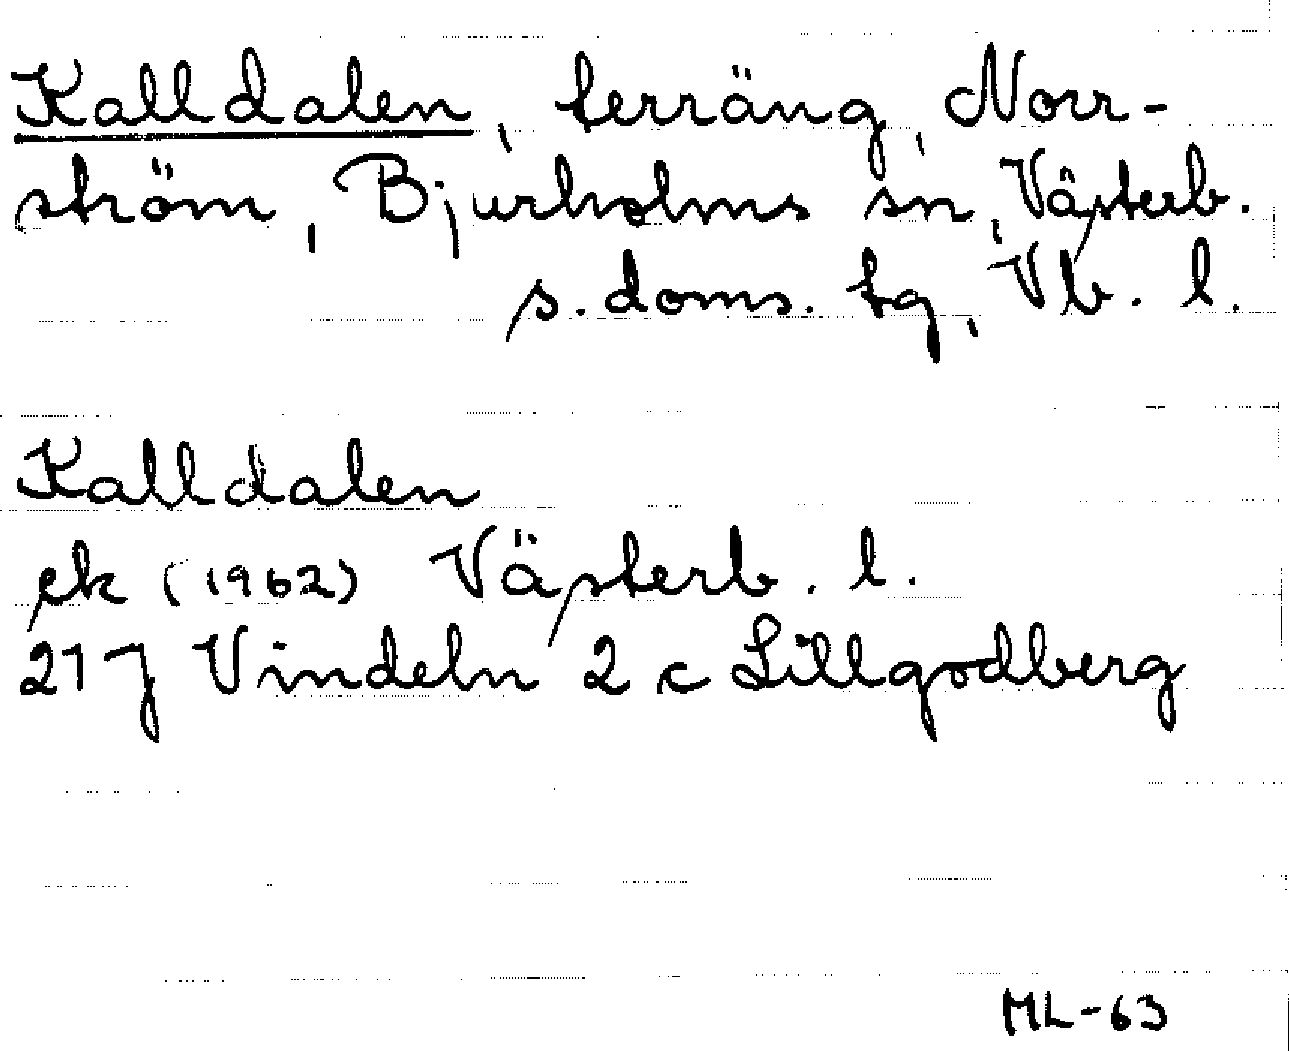 Kalldalen, terräng, Norr-
ström, Bjurholms sn, Västerb.
s. doms. tg, Vb. l.
Kalldalen
ek (1962) Västerb. l.
21 J Vindeln 2 c Lillgodberg
ML-63